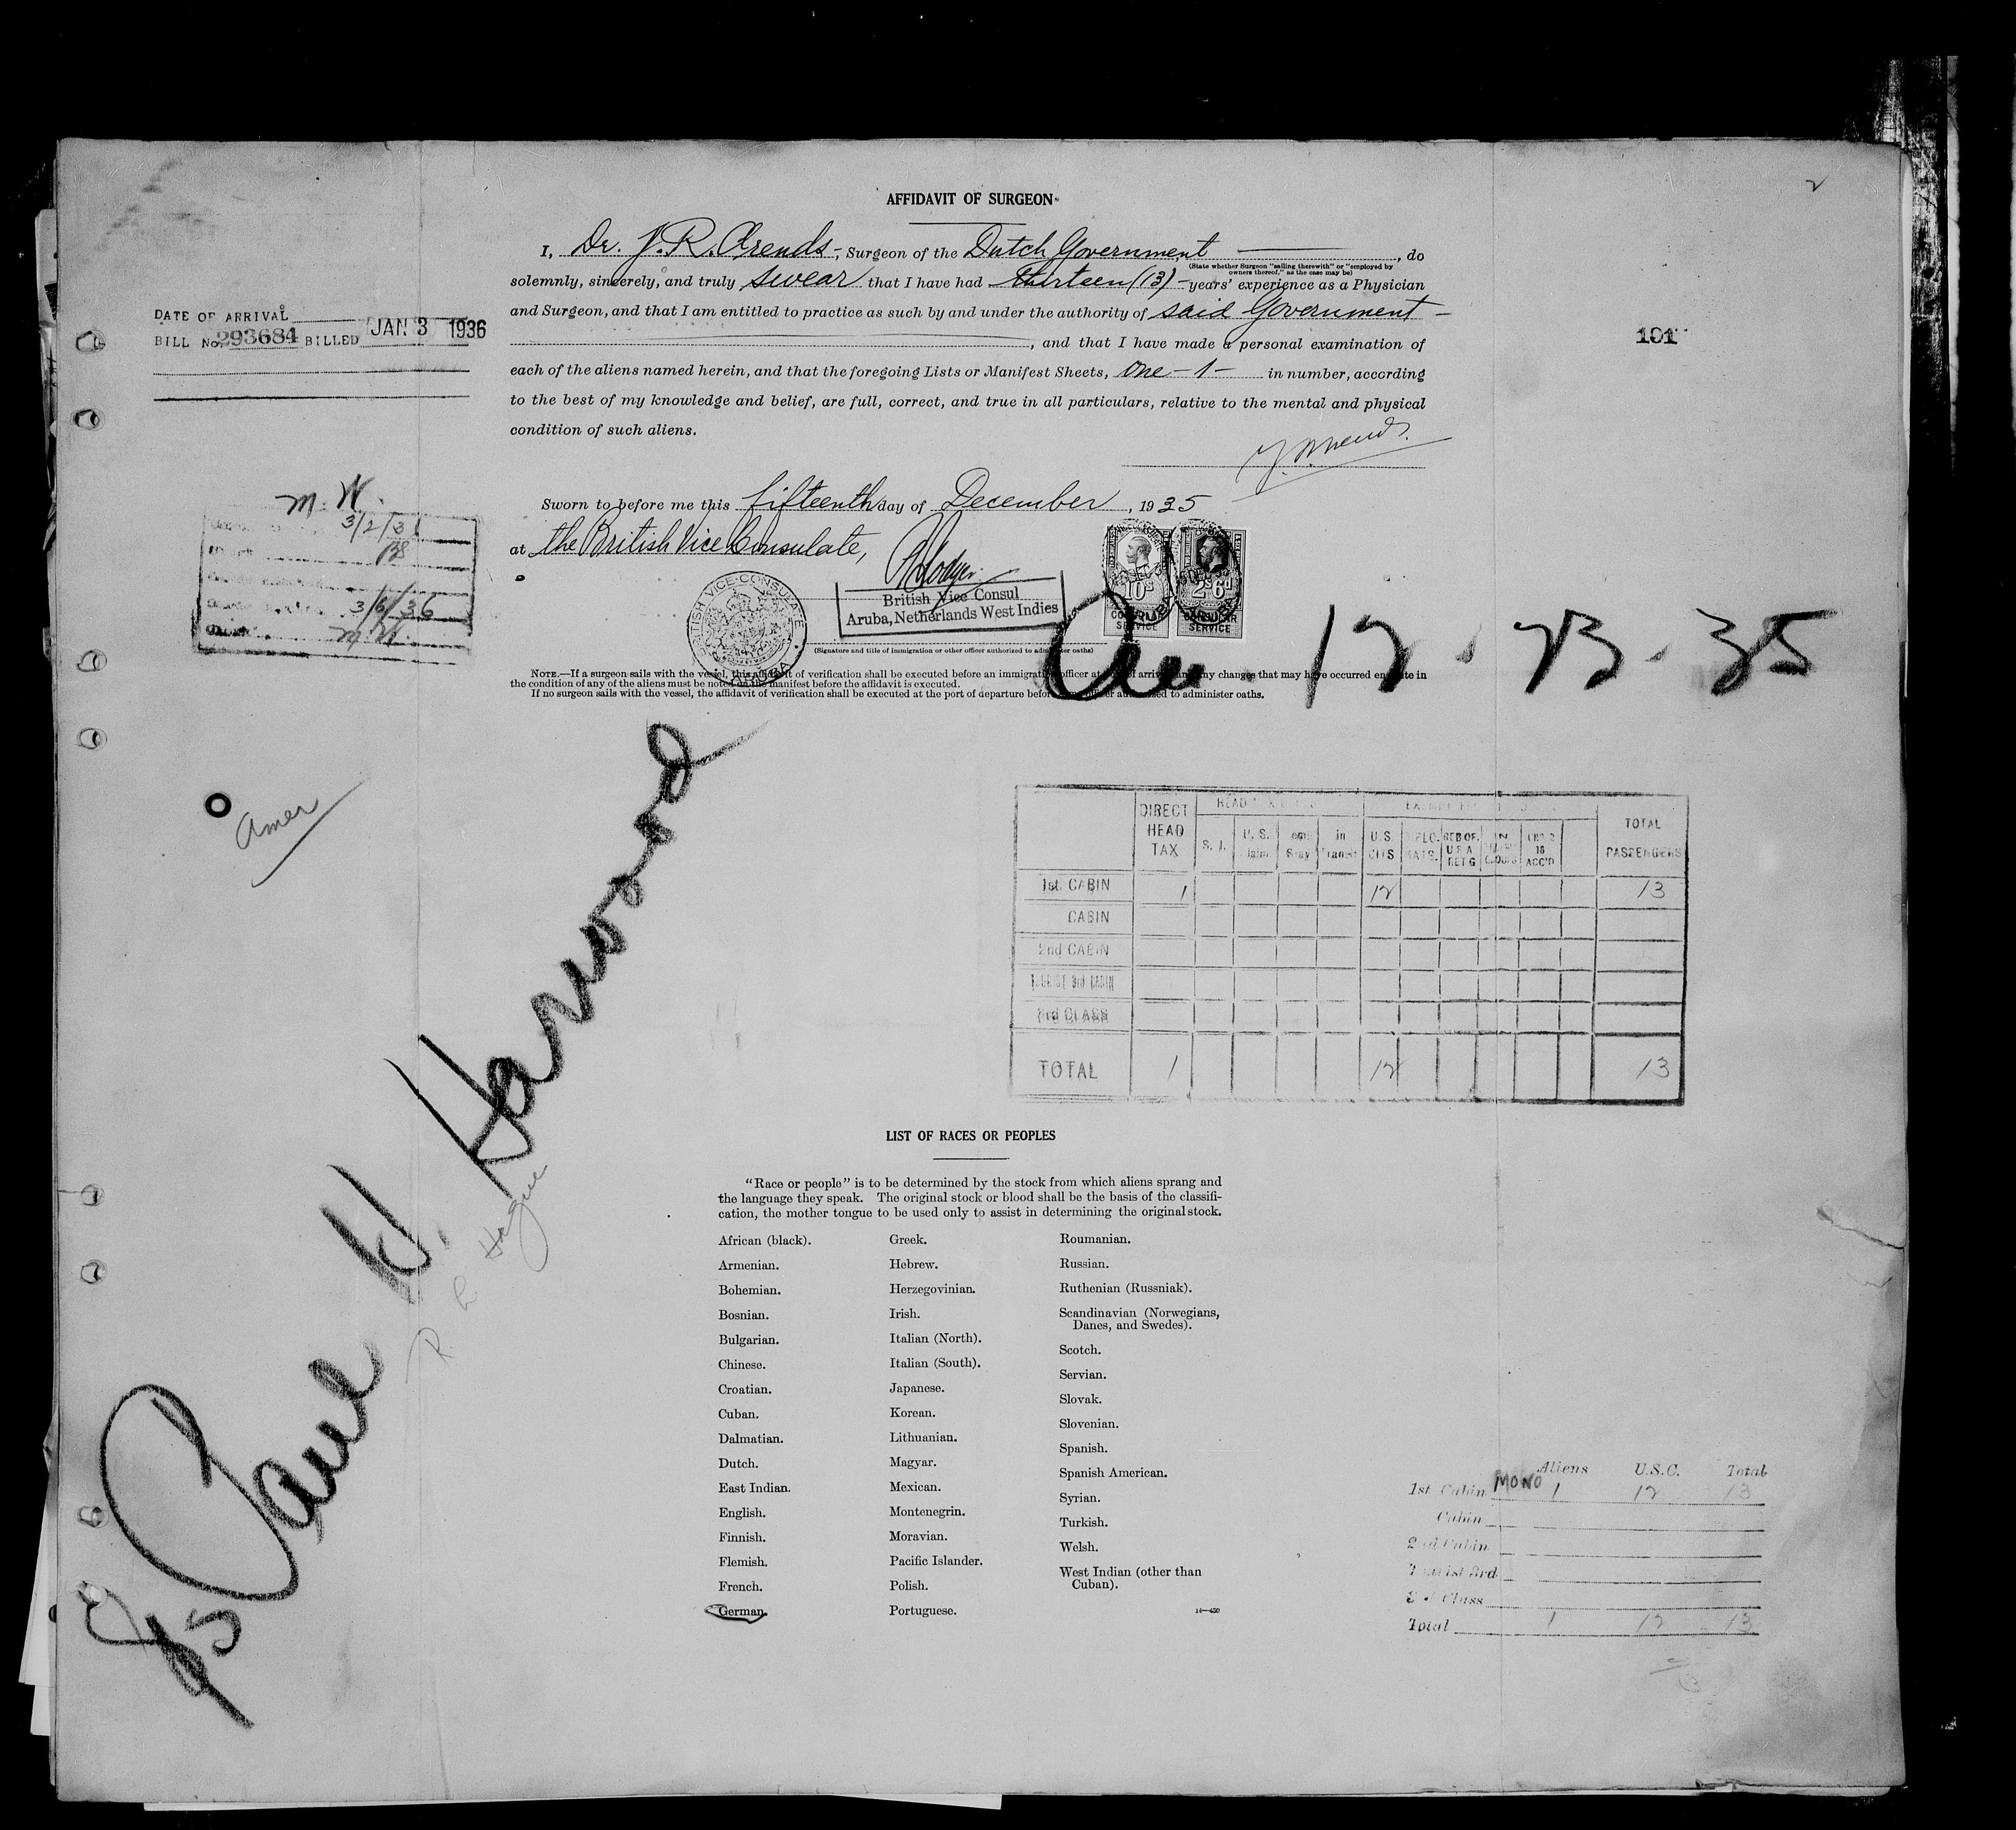 2
AFFIDAVIT OF SURGEON
I, Dr. J. R. Arends, Surgeon of the Dutch Government, do
(State whether Surgeon "sailing therewith" or "employed by
owners thereof," as the case may be)
solemnly, sincerely, and truly swear that I have had thirteen (13) years' experience as a Physician
and Surgeon, and that I am entitled to practice as such by and under the authority of said Government
, and that I have made a personal examination of
each of the aliens named herein, and that the foregoing Lists or Manifest Sheets, One - 1 - in number, according
to the best of my knowledge and belief, are full, correct, and true in all particulars, relative to the mental and physical
condition of such aliens.
DATE OF ARRIVAL
BILL No. 293684 BILLED JAN 3 1936
191
Sworn to before me this fifteenth day of December, 1935
at the British Vice Consulate,
British Vice Consul
Aruba, Netherlands West Indies
BRITISH VICE-CONSULATE
ARUBA
10s
CONSULAR
SERVICE
2s 6d
CONSULAR
SERVICE
(Signature and title of immigration or other officer authorized to administer oaths)
M. W.
3/2/36
3/6/36
M. W.
12 . 23 . 35
NOTE.—If a surgeon sails with the vessel, this affidavit of verification shall be executed before an immigration officer at port of arrival and any changes that may have occurred en route in
the condition of any of the aliens must be noted on the manifest before the affidavit is executed.
If no surgeon sails with the vessel, the affidavit of verification shall be executed at the port of departure before an officer authorized to administer oaths.
Amer
SS Paul H. Harwood
R. L. Hague
DIRECT HEAD TAX
HEAD TAX
S. I.
U. S.
in Transit
U.S. CITS
DIPLOMATS.
TOTAL PASSENGERS
1st CABIN 1 12 13
CABIN
2nd CABIN
TOURIST 3rd CABIN
3rd CLASS
TOTAL 1 12 13
LIST OF RACES OR PEOPLES
"Race or people" is to be determined by the stock from which aliens sprang and
the language they speak. The original stock or blood shall be the basis of the classifi-
cation, the mother tongue to be used only to assist in determining the original stock.
African (black).
Armenian.
Bohemian.
Bosnian.
Bulgarian.
Chinese.
Croatian.
Cuban.
Dalmatian.
Dutch.
East Indian.
English.
Finnish.
Flemish.
French.
German.
Greek.
Hebrew.
Herzegovinian.
Irish.
Italian (North).
Italian (South).
Japanese.
Korean.
Lithuanian.
Magyar.
Mexican.
Montenegrin.
Moravian.
Pacific Islander.
Polish.
Portuguese.
Roumanian.
Russian.
Ruthenian (Russniak).
Scandinavian (Norwegians,
Danes, and Swedes).
Scotch.
Servian.
Slovak.
Slovenian.
Spanish.
Spanish American.
Syrian.
Turkish.
Welsh.
West Indian (other than
Cuban).
Aliens U.S.C. Total
1st Cabin MONO 1 12 13
Cabin
2nd Cabin
Tourist 3rd
3rd Class
Total 1 12 13